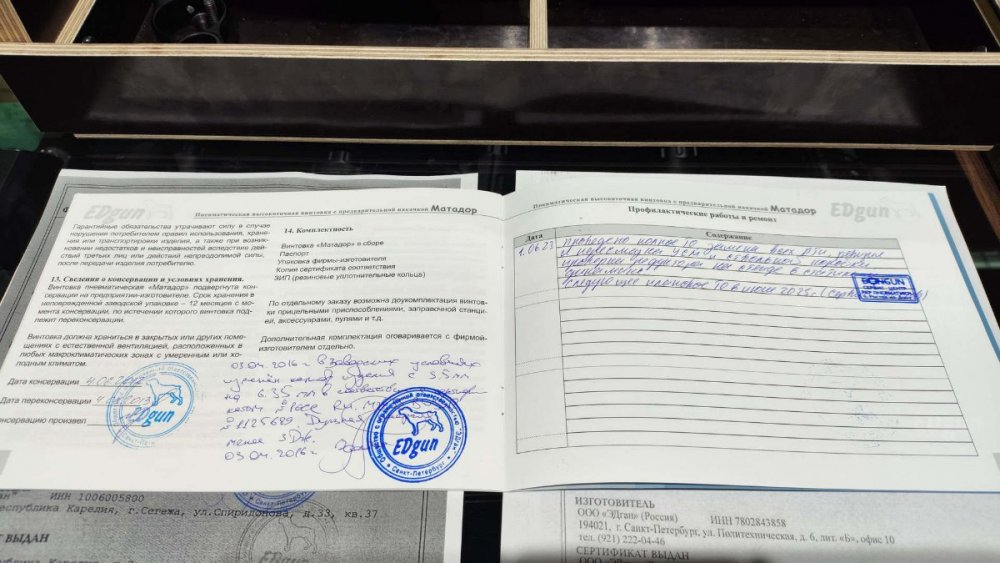 EDgun
Пневматическая высокоточная винтовка с предварительной накачкой Матадор
Гарантийные обязательства утрачивают силу в случае
нарушения потребителем правил использования, хране-
ния или транспортировки изделия, а также при возник-
новении недостатков и неисправностей вследствие дей-
ствий третьих лиц или действий непреодолимой силы,
после передачи изделия потребителю.
13. Сведения о консервации и условиях хранения.
Винтовка пневматическая «Матадор» подвергнута кон-
сервации на предприятии-изготовителе. Срок хранения в
неповрежденной заводской упаковке – 12 месяцев с мо-
мента консервации, по истечении которого винтовка под-
лежит переконсервации.
Винтовка должна храниться в закрытых или других поме-
щениях с естественной вентиляцией, расположенных в
любых макроклиматических зонах с умеренным или хо-
лодным климатом.
Дата консервации
Дата переконсервации
консервацию произвел
EDgun
Санкт-Петербург
14. Комплектность
Винтовка «Матадор» в сборе
Паспорт
Упаковка фирмы-изготовителя
Копия сертификата соответствия
ЗИП (резиновые уплотнительные кольца)
По отдельному заказу возможна доукомплектация винтов-
ки прицельными приспособлениями, заправочной станци-
ей, аксессуарами, пулями и т.д.
Дополнительная комплектация оговаривается с фирмой-
изготовителем отдельно.
03.04.2016 в заводских условиях
калибр изделия с 5.5 мм
на 6.35 мм в
№
№ 1125689
менее 3 Дж.
03.04.2016
Общество с ограниченной ответственностью "ЭДган"
EDgun
Санкт-Петербург
Пневматическая высокоточная винтовка с предварительной накачкой Матадор
EDgun
Профилактические работы и ремонт
Дата Содержание
1.06.23 Проведено полное ТО замена всех РТИ, ревизия
и пересмазка УСМ,
проверки редуктора на стенде в
следующее плановое ТО в июне 2025г.
BONGUN
СЕРВИС ЦЕНТР
ИНН 1006005800
Республика Карелия, г.Сегежа, ул.Спиридонова, д.33, кв.37
ВЫДАН
EDgun
ИЗГОТОВИТЕЛЬ
ООО «ЭДган» (Россия) ИНН 7802843858
194021, г. Санкт-Петербург, ул. Политехническая, д. 6, лит. «Б», офис 10
тел. (921) 222-04-46
СЕРТИФИКАТ ВЫДАН